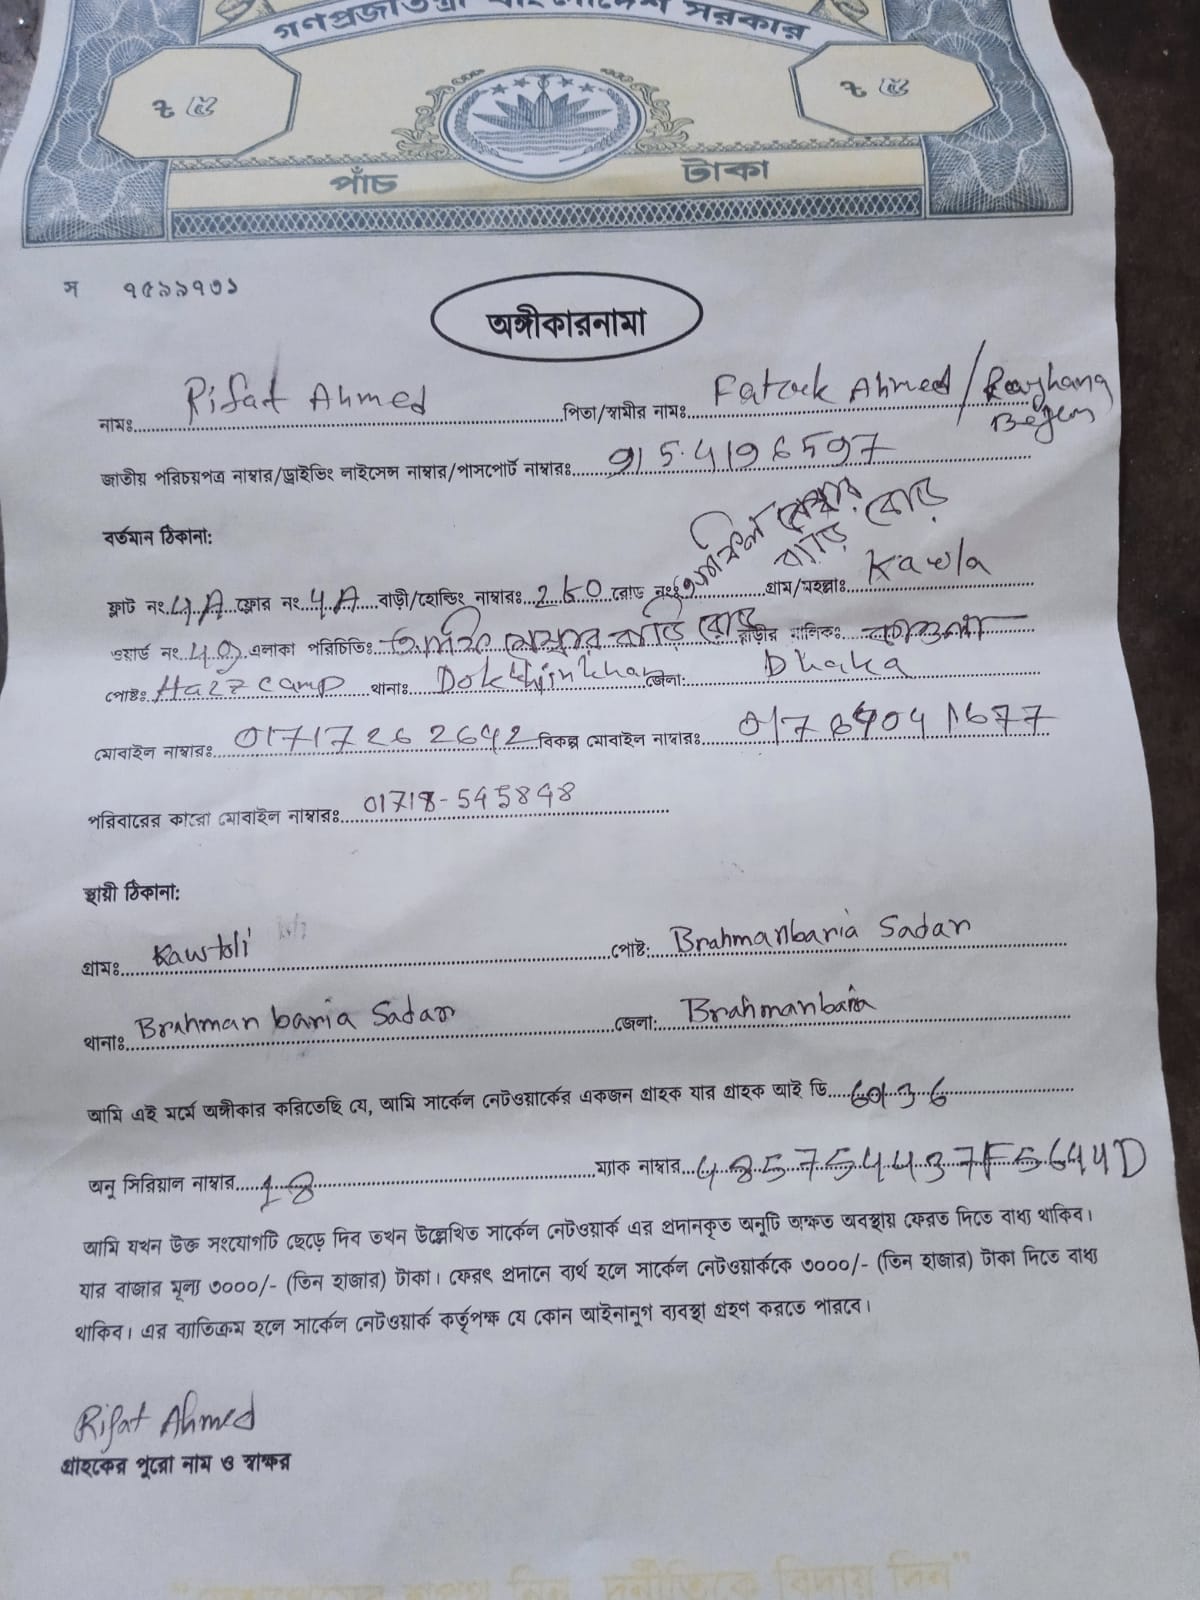 গণপ্রজাতন্ত্রী বাংলাদেশ সরকার
৳ ৫ ৳ ৫
পাঁচ টাকা
স ৭৫১৯৭৩১
অঙ্গীকারনামা
নামঃ Rifat Ahmed পিতা/স্বামীর নামঃ Ahmed / Rayhana
Begum
জাতীয় পরিচয়পত্র নাম্বার/ড্রাইভিং লাইসেন্স নাম্বার/পাসপোর্ট নাম্বারঃ 9154196597
বর্তমান ঠিকানা:
ফ্লাট নং. 4A ফ্লোর নং. 4A বাড়ী/হোল্ডিং নাম্বারঃ 260 রোড নংঃ মেম্বার বাড়ি রোড গ্রাম/মহল্লাঃ Kawla
ওয়ার্ড নং. 49 এলাকা পরিচিতিঃ মেম্বার বাড়ি রোড বাড়ীর মালিকঃ
পোষ্টঃ Hazz camp থানাঃ Dokkhinkhan জেলা: Dhaka
মোবাইল নাম্বারঃ 01717262642 বিকল্প মোবাইল নাম্বারঃ
পরিবারের কারো মোবাইল নাম্বারঃ 01718-545848
স্থায়ী ঠিকানা:
গ্রামঃ Kawtoli পোষ্ট: Brahmanbaria Sadar
থানাঃ Brahmanbaria Sadar জেলা: Brahmanbaria
আমি এই মর্মে অঙ্গীকার করিতেছি যে, আমি সার্কেল নেটওয়ার্কের একজন গ্রাহক যার গ্রাহক আই ডি
অনু সিরিয়াল নাম্বার 18 ম্যাক নাম্বার 485754437F5644D
আমি যখন উক্ত সংযোগটি ছেড়ে দিব তখন উল্লেখিত সার্কেল নেটওয়ার্ক এর প্রদানকৃত অনুটি অক্ষত অবস্থায় ফেরত দিতে বাধ্য থাকিব।
যার বাজার মূল্য ৩০০০/- (তিন হাজার) টাকা। ফেরৎ প্রদানে ব্যর্থ হলে সার্কেল নেটওয়ার্ককে ৩০০০/- (তিন হাজার) টাকা দিতে বাধ্য
থাকিব। এর ব্যাতিক্রম হলে সার্কেল নেটওয়ার্ক কর্তৃপক্ষ যে কোন আইনানুগ ব্যবস্থা গ্রহণ করতে পারবে।
Rifat Ahmed
গ্রাহকের পুরো নাম ও স্বাক্ষর
দুর্নীতিকে বিদায় দিন"